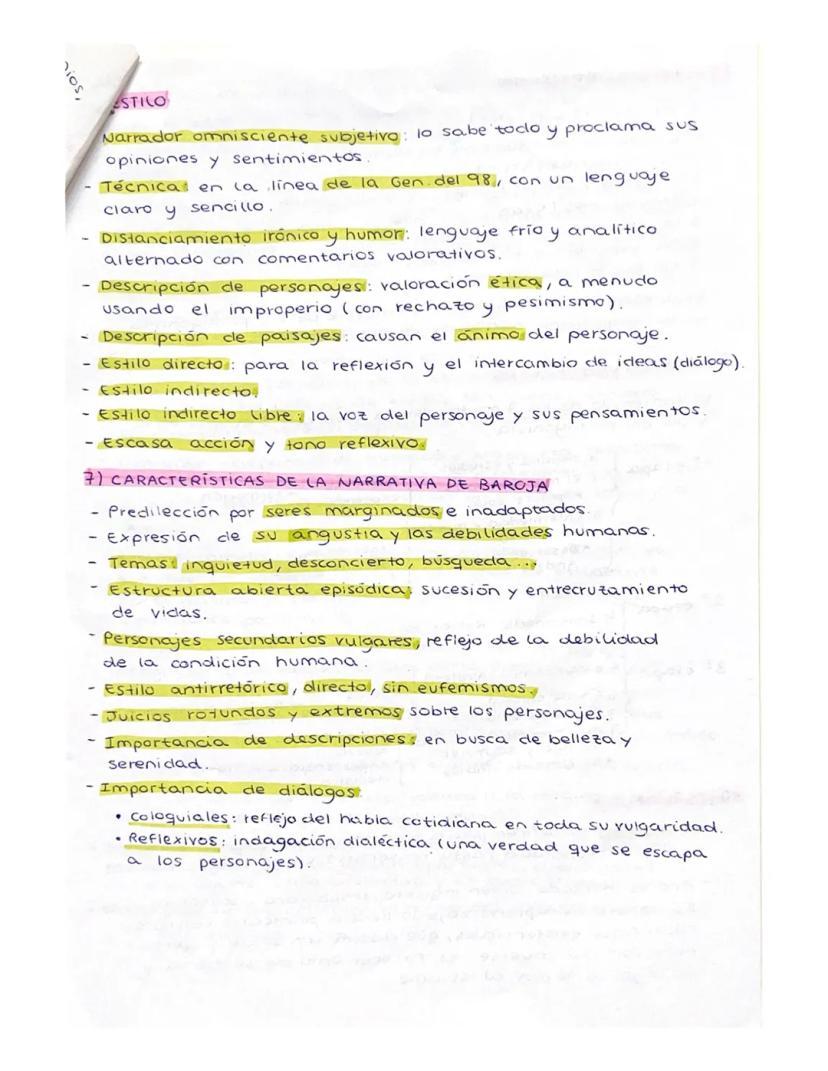 Dios,
ESTILO
Narrador omnisciente subjetivo: lo sabe todo y proclama sus
opiniones y sentimientos.
- Técnica: en la línea de la Gen. del 98, con un lenguaje
claro y sencillo.
- Distanciamiento irónico y humor: lenguaje frío y analítico
alternado con comentarios valorativos.
- Descripción de personajes: valoración ética, a menudo
usando el improperio (con rechazo y pesimismo).
- Descripción de paisajes: causan el ánimo del personaje.
- Estilo directo: para la reflexión y el intercambio de ideas (diálogo).
- Estilo indirecto.
- Estilo indirecto libre: la voz del personaje y sus pensamientos.
- Escasa acción y tono reflexivo.
7) CARACTERÍSTICAS DE LA NARRATIVA DE BAROJA
- Predilección por seres marginados e inadaptados.
- Expresión de su angustia y las debilidades humanas.
- Temas: inquietud, desconcierto, búsqueda...
- Estructura abierta episódica: sucesión y entrecruzamiento
de vidas.
- Personajes secundarios vulgares, reflejo de la debilidad
de la condición humana.
- Estilo antirretórico, directo, sin eufemismos.
- Juicios rotundos y extremos sobre los personajes.
- Importancia de descripciones: en busca de belleza y
serenidad.
- Importancia de diálogos:
• Coloquiales: reflejo del habla cotidiana en toda su vulgaridad.
• Reflexivos: indagación dialéctica (una verdad que se escapa
a los personajes).